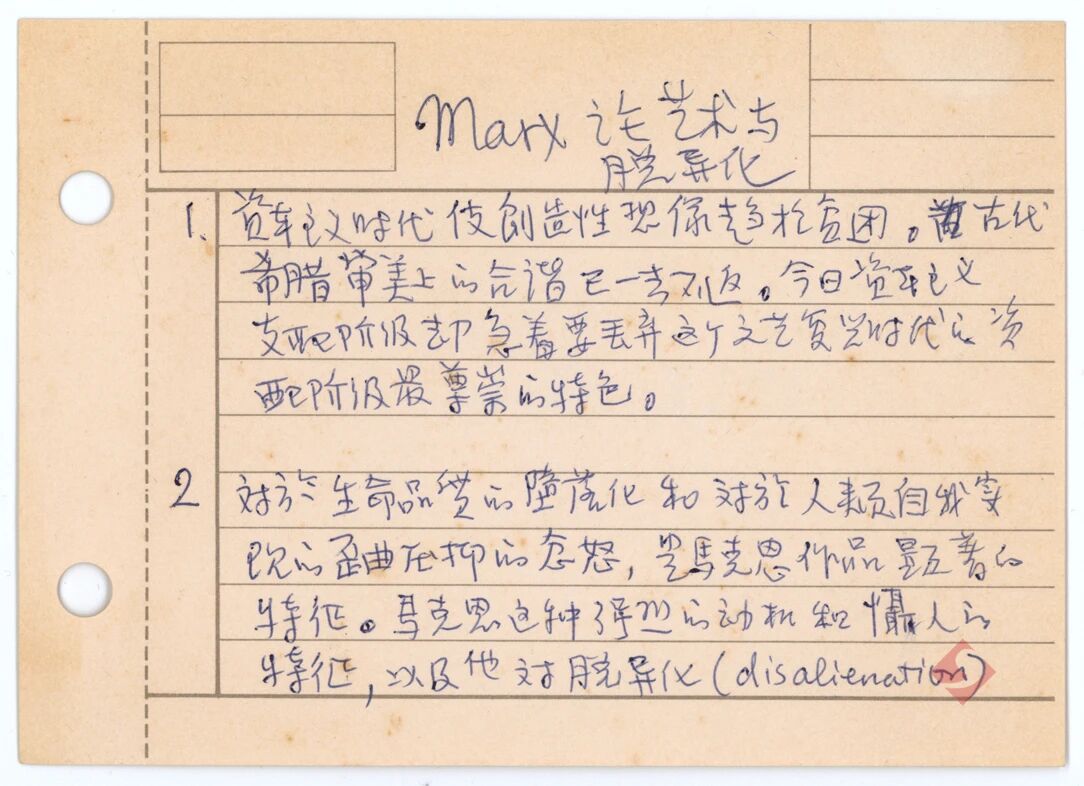 Marx 论艺术与
脱异化
1. 资本主义时代使創造性想像趋於贫困。古代
希腊审美上的合谐已一去不返。今日资本主义
支配阶级却急着要丢弃这个文艺复兴时代的资
配阶级最尊崇的特色。
2 对於生命品質的墮落化和对於人类自我实
现的歪曲压抑的忿怒，是馬克思作品显著的
特征。马克思这种强烈的动机和懾人的
特征，以及他对脱异化（disalienation）